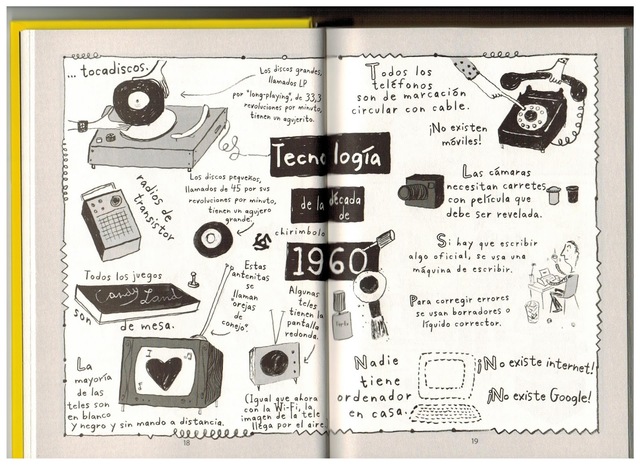 ... tocadiscos.
Los discos grandes,
llamados LP
por "long-playing", de 33,3
revoluciones por minuto,
tienen un agujerito.
radios de
transistor
Los discos pequeños,
llamados de 45 por sus
revoluciones por minuto,
tienen un agujero
grande.
chirimbolo
Tecnología
de la década
de
1960
Todos los juegos
Candy Land
son
de mesa.
Estas
antenitas
se
llaman
"orejas
de
conejo".
Algunas
teles
tienen la
pantalla
redonda.
La
mayoría
de las
teles son
en blanco
y negro y sin mando a distancia.
(Igual que ahora
con la Wi-Fi, la
imagen de la tele
llega por el aire.
18
Todos los
teléfonos
son de marcación
circular con cable.
¡No existen
móviles!
Las cámaras
necesitan carretes
con película que
debe ser revelada.
Si hay que escribir
algo oficial, se usa una
máquina de escribir.
Para corregir errores
se usan borradores o
líquido corrector.
Nadie
tiene
ordenador
en casa.
¡No existe internet!
¡No existe Google!
19